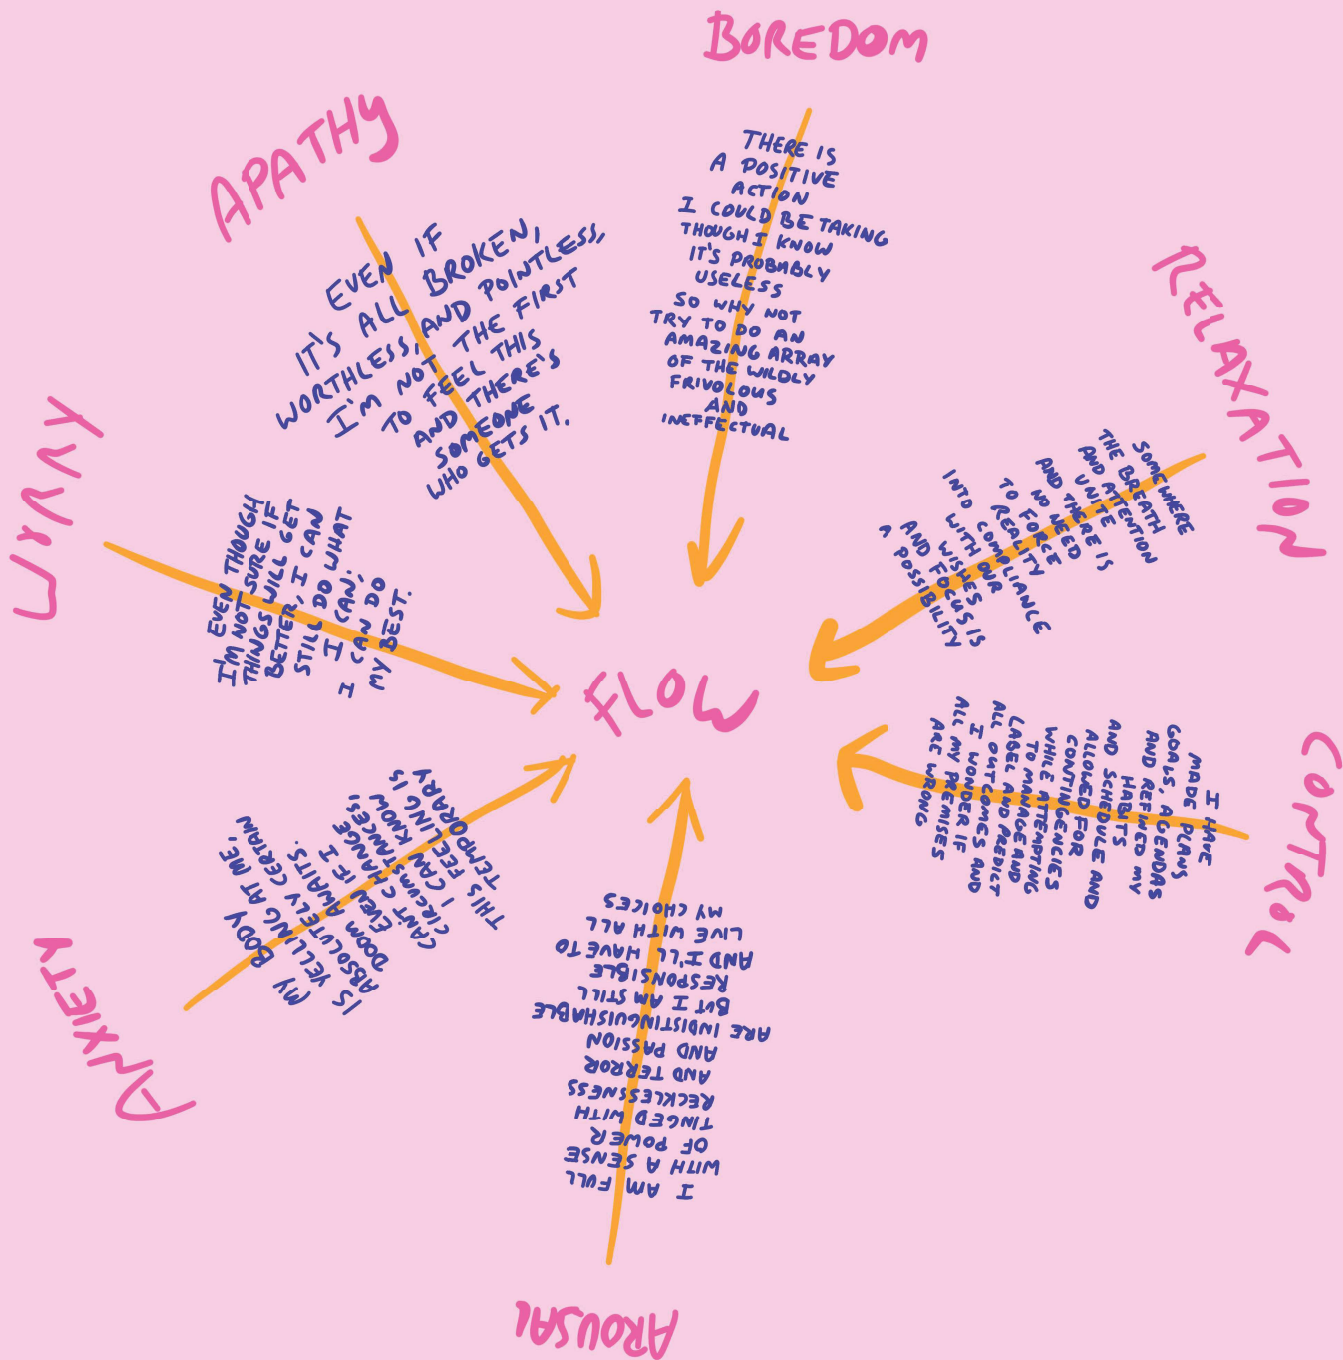 BOREDOM
THERE IS
A POSITIVE
ACTION
I COULD BE TAKING
THOUGH I KNOW
IT'S PROBABLY
USELESS
SO WHY NOT
TRY TO DO AN
AMAZING ARRAY
OF THE WILDLY
FRIVOLOUS
AND
INEFFECTUAL
RELAXATION
SOMEWHERE
THE BREATH
AND ATTENTION
UNITE
AND THERE IS
NO NEED
TO FORCE
REALITY
INTO COMPLIANCE
WITH OUR
WISHES
AND FOCUS IS
A POSSIBILITY
CONTROL
I HAVE
MADE PLANS
GOALS, AGENDAS
AND REFINED MY
HABITS
AND SCHEDULE AND
ALLOWED FOR
CONTINGENCIES
WHILE ATTEMPTING
TO MANAGE AND
LABEL AND PREDICT
ALL OUTCOMES AND
I WONDER IF
ALL MY PREMISES
ARE WRONG
AROUSAL
I AM FULL
WITH A SENSE
OF POWER
TINGED WITH
RECKLESSNESS
AND TERROR
AND PASSION
ARE INDISTINGUISHABLE
BUT I AM STILL
RESPONSIBLE
AND I'LL HAVE TO
LIVE WITH ALL
MY CHOICES
ANXIETY
MY BODY
IS YELLING AT ME,
ABSOLUTELY CERTAIN
DOOM AWAITS.
EVEN IF I
CAN'T CHANGE
CIRCUMSTANCES,
I CAN KNOW
THIS FEELING IS
TEMPORARY
WORRY
EVEN THOUGH
I'M NOT SURE IF
THINGS WILL GET
BETTER, I CAN
STILL DO WHAT
I CAN.
I CAN DO
MY BEST.
APATHY
EVEN IF
IT'S ALL BROKEN,
WORTHLESS, AND POINTLESS,
I'M NOT THE FIRST
TO FEEL THIS
AND THERE'S
SOMEONE
WHO GETS IT.
FLOW